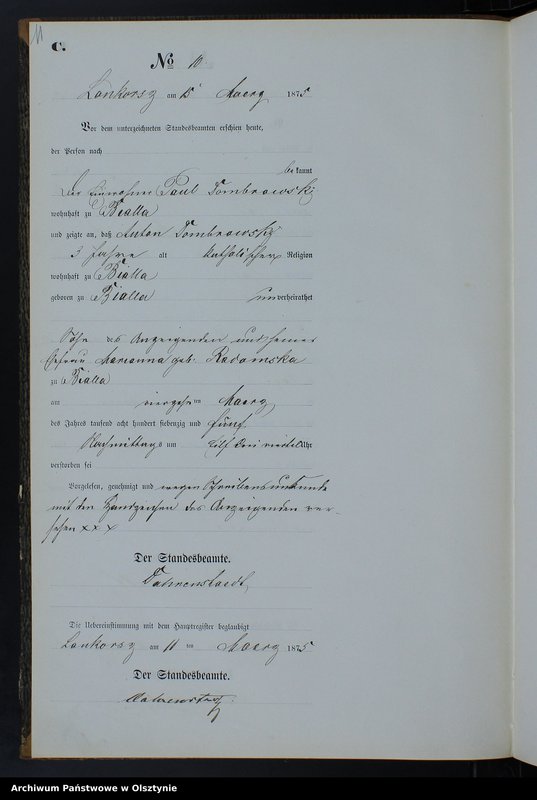 11
C.
No 10
Lonkorsz am 15 ten Maerz 1875
Vor dem unterzeichneten Standesbeamten erschien heute,
der Person nach
bekannt
Der Einwohner Paul Dombrowski
wohnhaft zu Bialla
und zeigte an, daß Anton Dombrowski
3 Jahre alt katholischer Religion
wohnhaft zu Bialla
geboren zu Bialla unverheirathet
Sohn des Anzeigenden und seiner
Ehefrau Marianna geb. Radomska
zu Bialla
am vierzehn ten Maerz
des Jahres tausend acht hundert siebenzig und fünf
Nachmittags um Elf drei viertel Uhr
verstorben sei
Vorgelesen, genehmigt und wegen Schreibensunkunde
mit den Handzeichen des Anzeigenden ver-
sehen x x x
Der Standesbeamte.
Die Uebereinstimmung mit dem Hauptregister beglaubigt
Lonkorsz am ten Maerz 1875
Der Standesbeamte.
Archiwum Państwowe w Olsztynie